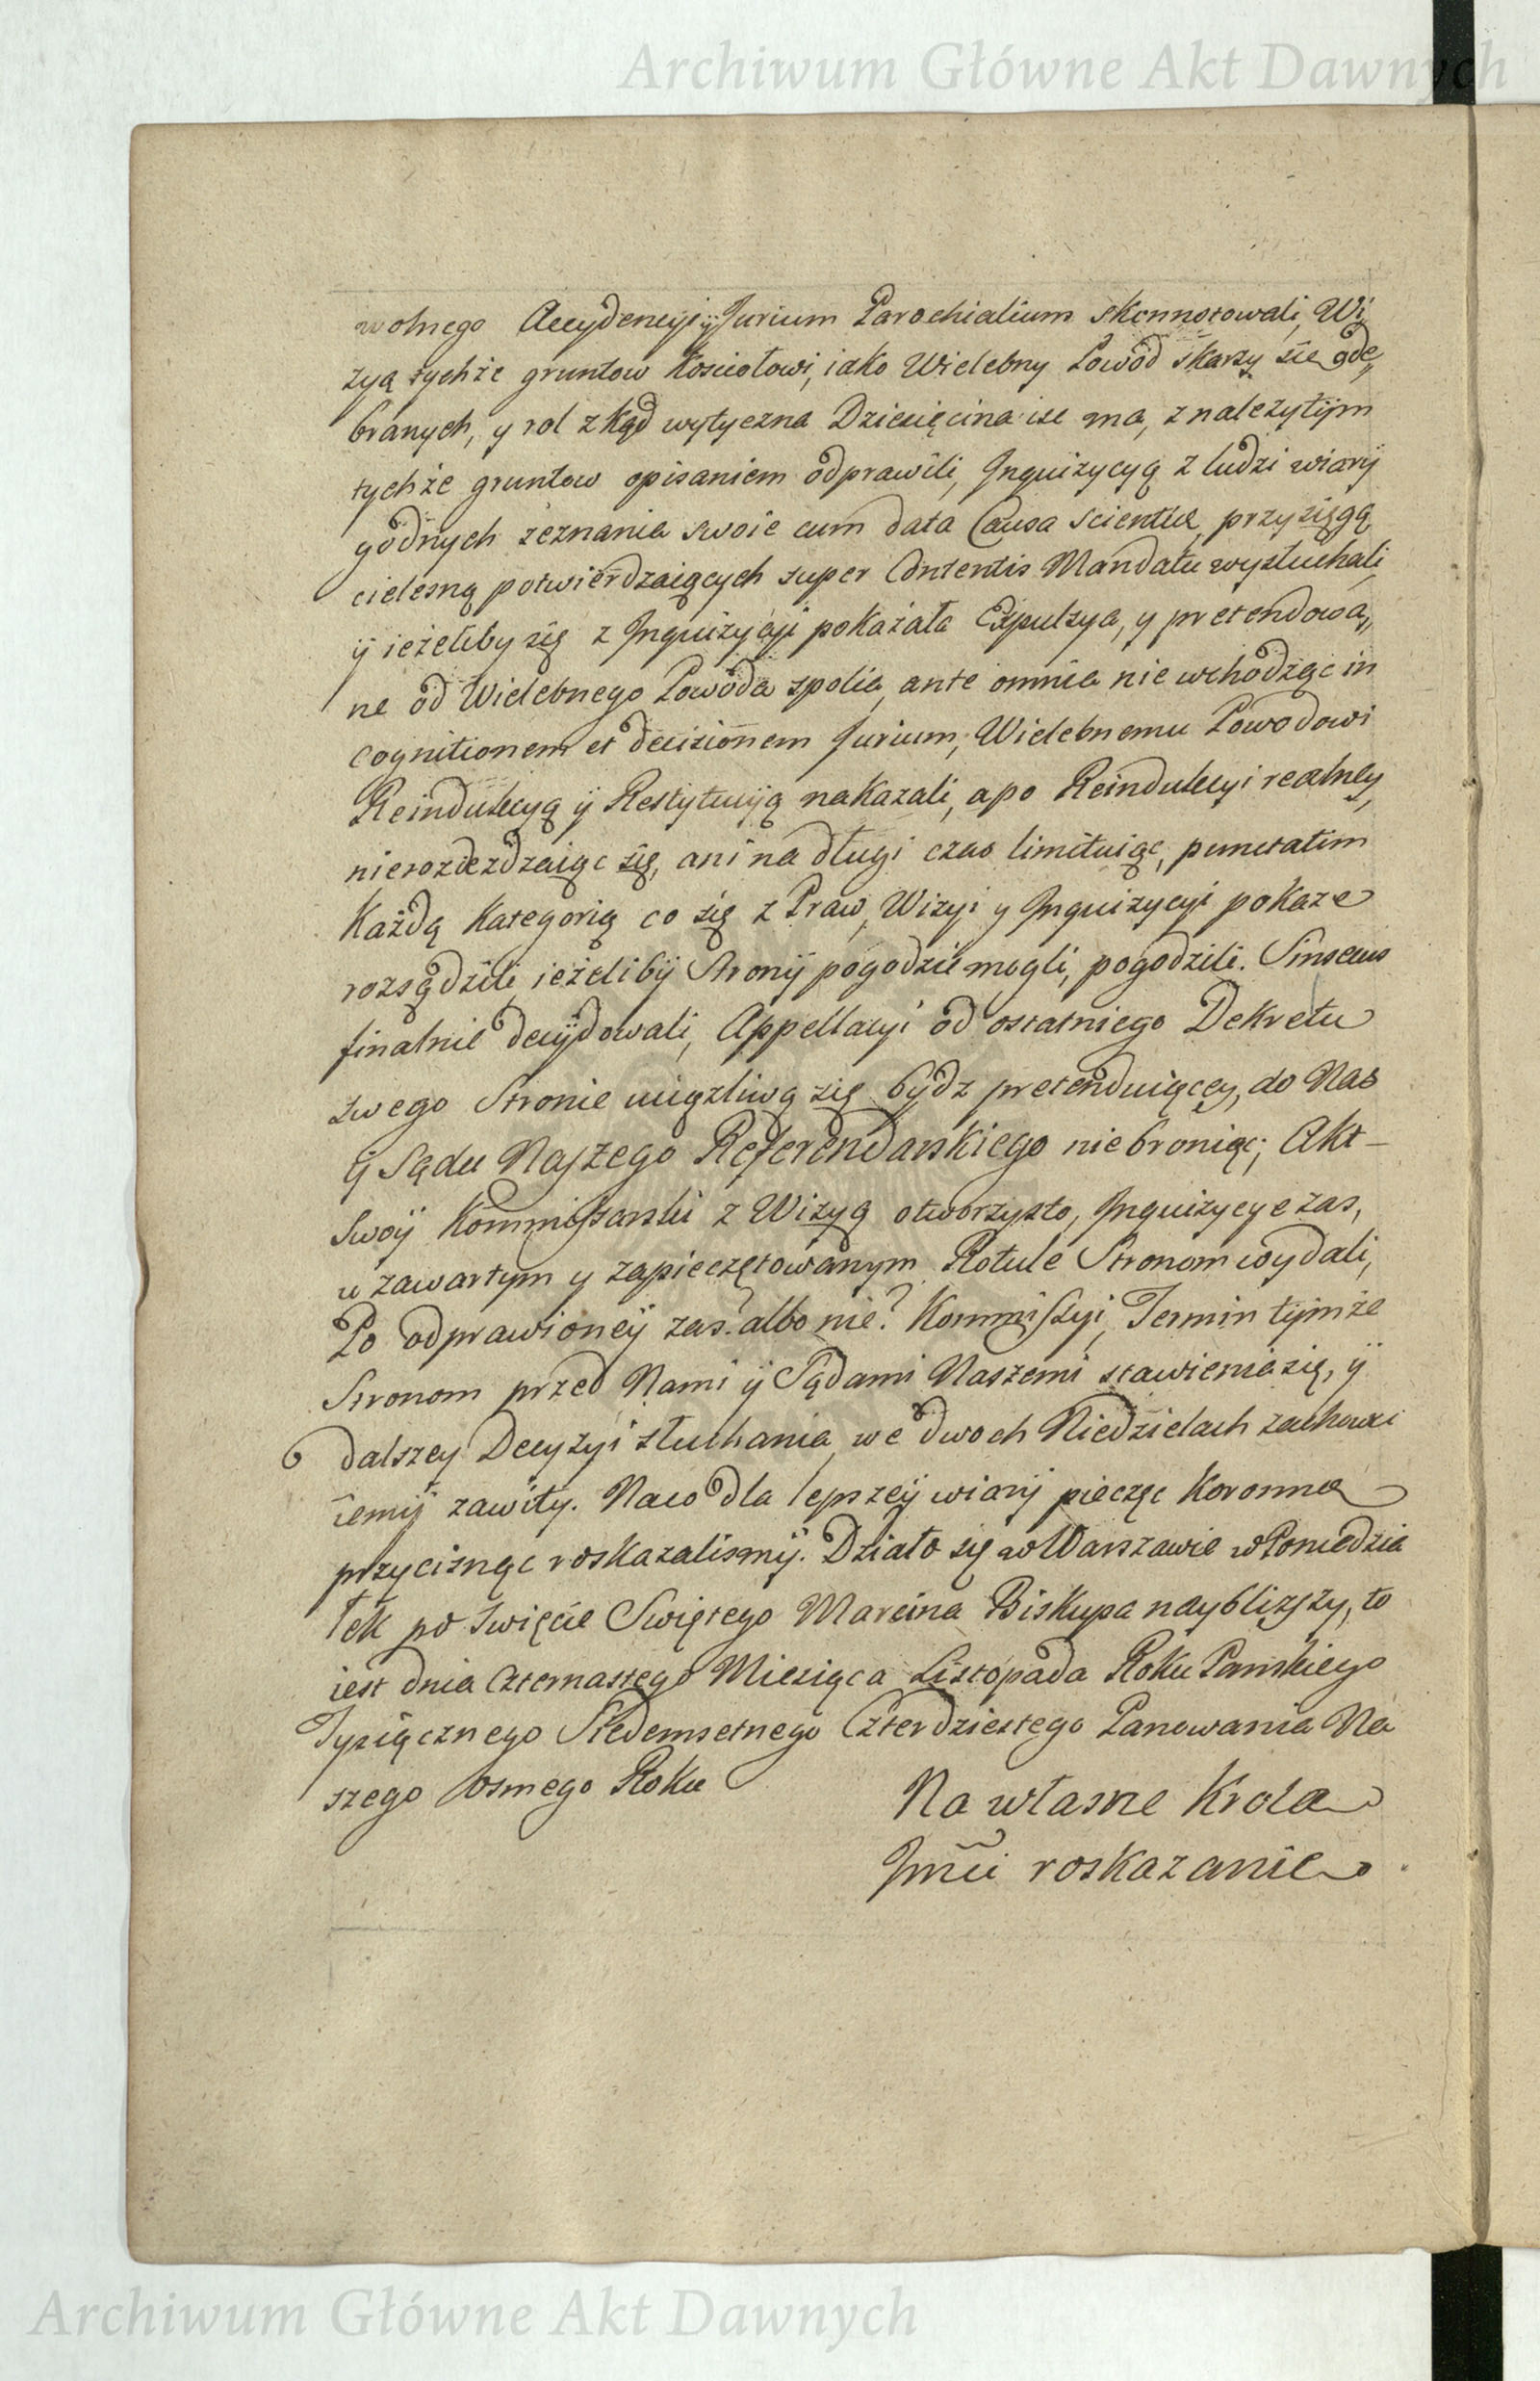 Archiwum Główne Akt Dawnych
wolnego Accydencyi ÿ Jurium Parochialium skonnotowali, Wi„
zyą tychże gruntow kosciołowi, iako Wielebny Powod skarzy się ode„
branych, y rol z kąd wytyczna Dziesięcina isc ma, z nalezytÿm
tychże gruntow opisaniem odprawili, Jnquizycyą z ludzi wiarÿ
godnych zeznania swoie cum data Causa scientiæ, przysięgą
cielesną potwierdzaiących super Contentis Mandatu wysłuchali,
ÿ ieżeliby się z Jnquizycyi pokazała Expulsya, y pretendowa„
ne od Wielebnego Powoda spolia, ante omnia nie wchodząc in
cognitionem et decisionem Jurium, Wielebnemu Powodowi
Reindukcyą ÿ Restytucÿą nakazali, a po Reindukcyi realney,
nieroziezdzaiąc się, ani na długi czas limituiąc, punctatim
Każdą Kategorią co się z Praw, Wizyi y Jnquizycyi pokaze
rozsądzili, ieżelibÿ Stronÿ pogodzic mogli, pogodzili. Sinsecus
finalnie decÿdowali, Appellacyi od ostatniego Dekretu
swego Stronie uciązliwą się bÿdz pretenduiącey, do Nas
ÿ Sądu Naszego Referendarskiego nie broniąc; Akt
Swoÿ Kommissarski z Wizyą otworzysto, Jnquizycye zas,
w zawartym y zapieczętowanym Rotule Stronom wydali,
Po odprawioneÿ zas? albo nie? Kommissyi, Termin tÿmże
Stronom przed Nami ÿ Sądami Naszemi stawienia się, ÿ
dalszey Decyzyi słuchania, we dwoch Niedzielach zachowa
iemÿ zawity. Naco dla lepszeÿ wiarÿ pieczęc Koronna
przycisnąc roskazalismÿ. Działo się w Warszawie w Poniedzia
łek po swięcie Swiętego Marcina Biskupa nayblizszy, to
iest dnia Czternastego Miesiąca Listopada Roku Panskiego
Tysiącznego Siedemsetnego Czterdziestego Panowania Na
szego Osmego Roku
Na własne Krola
Jmci roskazanie
Archiwum Główne Akt Dawnych